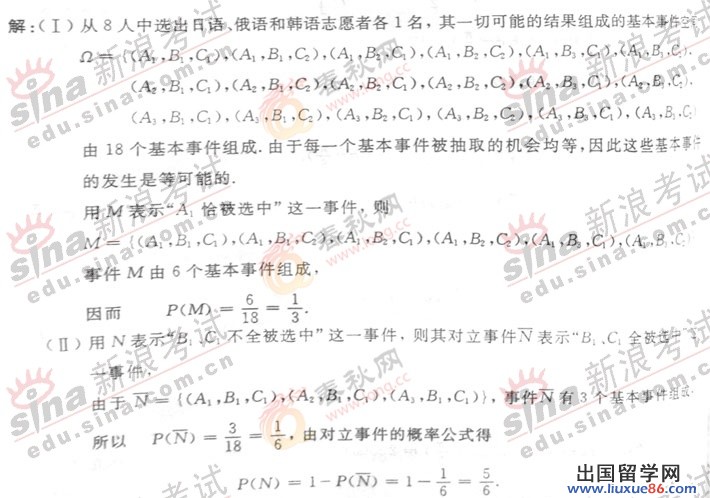 解:(Ⅰ)从8人中选出日语、俄语和韩语志愿者各1名，其一切可能的结果组成的基本事件空间
Ω={(A₁,B₁,C₁),(A₁,B₁,C₂),(A₁,B₂,C₁),(A₁,B₂,C₂),(A₁,B₃,C₁),(A₁,B₃,C₂),
(A₂,B₁,C₁),(A₂,B₁,C₂),(A₂,B₂,C₁),(A₂,B₂,C₂),(A₂,B₃,C₁),(A₂,B₃,C₂),
(A₃,B₁,C₁),(A₃,B₁,C₂),(A₃,B₂,C₁),(A₃,B₂,C₂),(A₃,B₃,C₁),(A₃,B₃,C₂)
由18个基本事件组成.由于每一个基本事件被抽取的机会均等，因此这些基本事件
的发生是等可能的.
用M表示“A₁恰被选中”这一事件，则
M={(A₁,B₁,C₁),(A₁,B₁,C₂),(A₁,B₂,C₁),(A₁,B₂,C₂),(A₁,B₃,C₁),(A₁,B₃,C₂)
事件M由6个基本事件组成，
因而 P(M)=6/18=1/3.
(Ⅱ)用N表示“B₁、C₁不全被选中”这一事件，则其对立事件N̅表示“B₁、C₁全被选中”这
一事件，
由于N̅={(A₁,B₁,C₁),(A₂,B₁,C₁),(A₃,B₁,C₁)}，事件N̅有3个基本事件组成.
所以 P(N̅)=3/18=1/6，由对立事件的概率公式得
P(N)=1-P(N̅)=1-1/6=5/6.
sina新浪考试
edu.sina.com.cn
春秋网
出国留学网
www.liuxue86.com